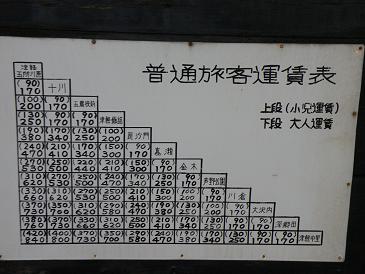 普通旅客運賃表
上段(小児運賃)
下段 大人運賃
津軽
五所川原
(90) 十川
170
(100) (90) 五農校前
200 170
(130) (90) (90) 津軽飯詰
250 170 170
(190) (170) (130) (100) 毘沙門
380 340 250 200
(240) (210) (170) (150) (90) 嘉瀬
470 410 340 300 170
(270) (250) (210) (150) (90) 金木
530 500 440 410 300 170
(310) (270) (250) (240) (170) (130) (90) 芦野公園
620 530 500 470 340 250 170
(330) (310) (270) (250) (210) (150) (100) (90) 川倉
660 620 530 500 410 300 200 170
(370) (350) (310) (290) (250) (190) (130) (100) (90) 大沢内
730 700 620 580 500 380 250 200 170
(380) (370) (330) (310) (250) (210) (170) (130) (90) (90) 深郷田
760 730 660 620 500 410 340 250 170 170
(420) (400) (370) (350) (290) (240) (190) (170) (130) (90) (90) 津軽中里
840 800 730 700 580 470 380 340 250 170 170